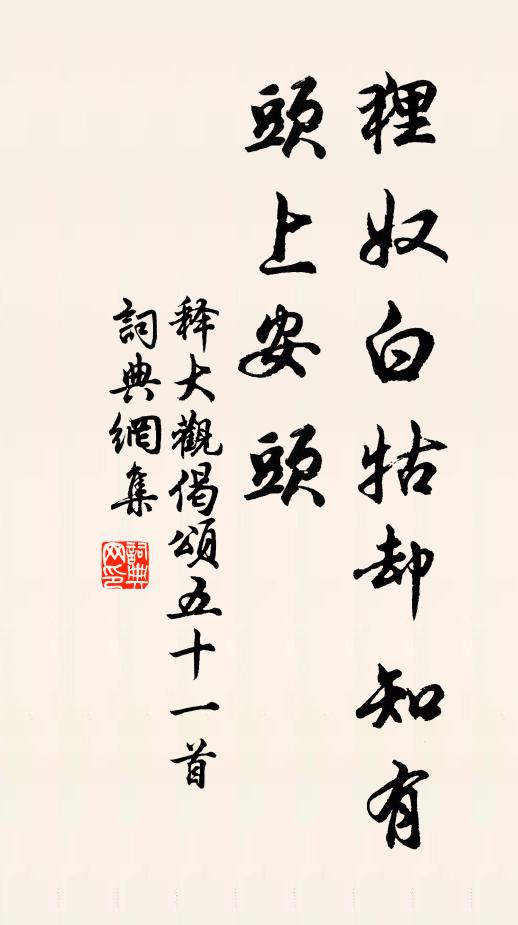 狸奴白牯却知有
頭上安頭
释大觀偈頌五十一首
詞典網集
詞典网印